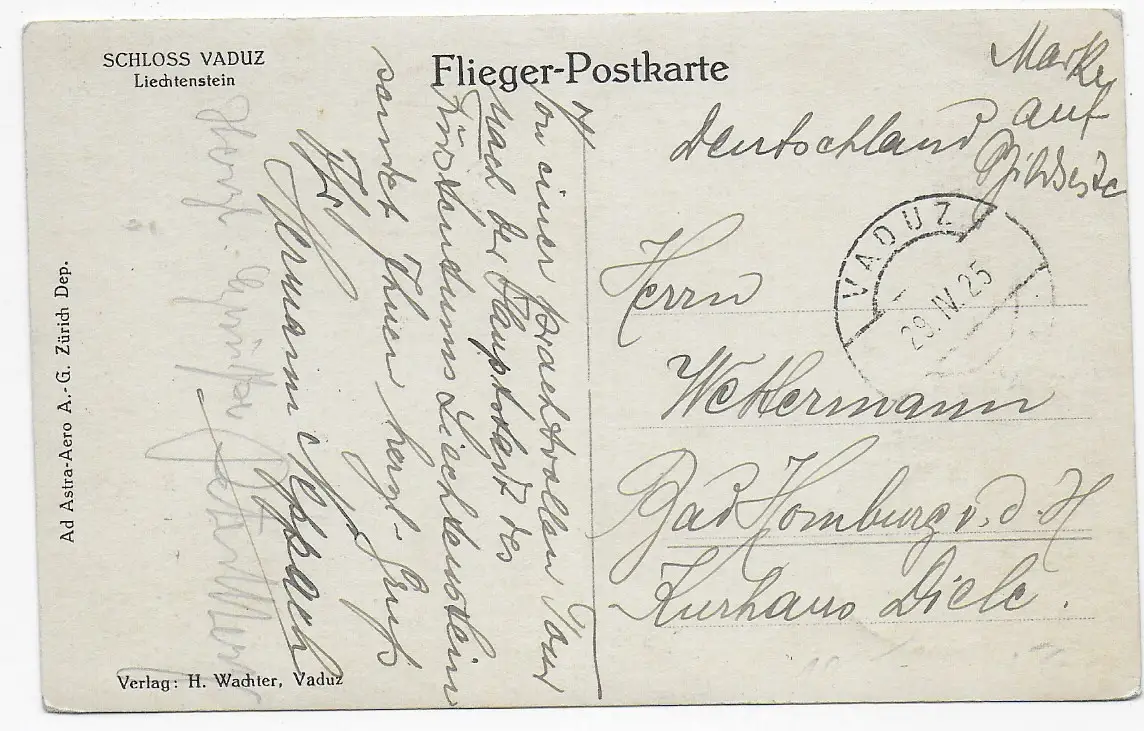 SCHLOSS VADUZ
Liechtenstein
Flieger-Postkarte
Marke
auf
Bildseite
Deutschland
VADUZ
29.IV.25
Herrn
Wettermann
Bad Homburg v. d. H
Kurhaus Diele.
Von einer prachtvollen Tour
nach der Hauptstadt des
Fürstentums Liechtenstein
sendet Ihnen herzl. Gruß
Ihr
Hermann
Herzl. Grüße
Ad Astra-Aero A.-G. Zürich Dep.
Verlag: H. Wachter, Vaduz